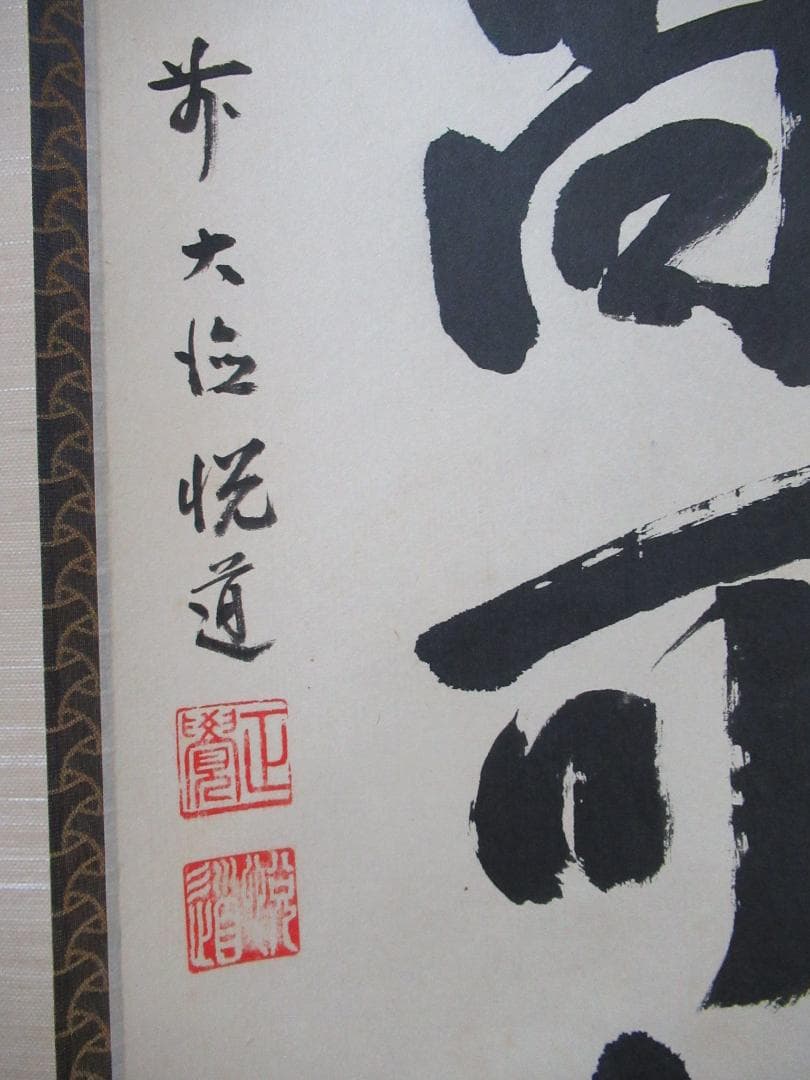 可
前大徳悦道
正覺
悦道